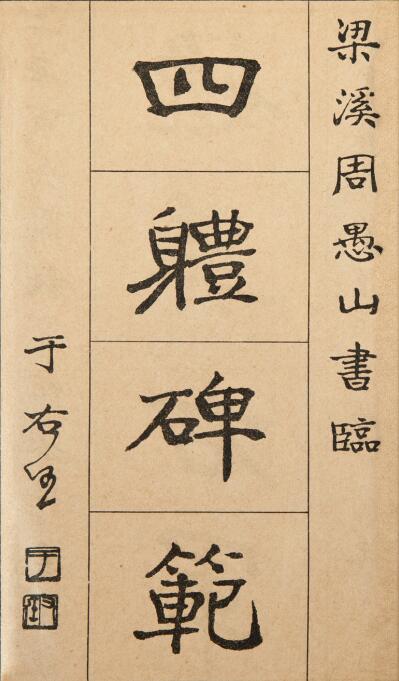 梁溪周愚山書臨
四軆碑範
于右任